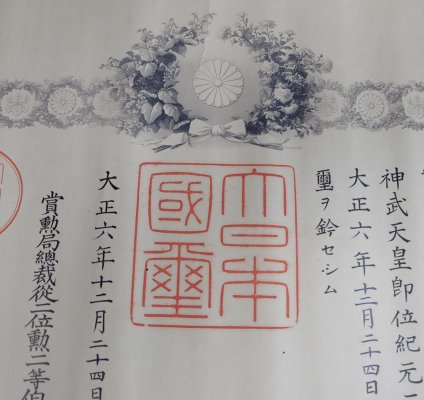 神武天皇即位紀元
大正六年十二月二十四日
璽ヲ鈐セシム
大日本
國璽
大正六年十二月二十四日
賞勲局總裁從三位勲二等伯